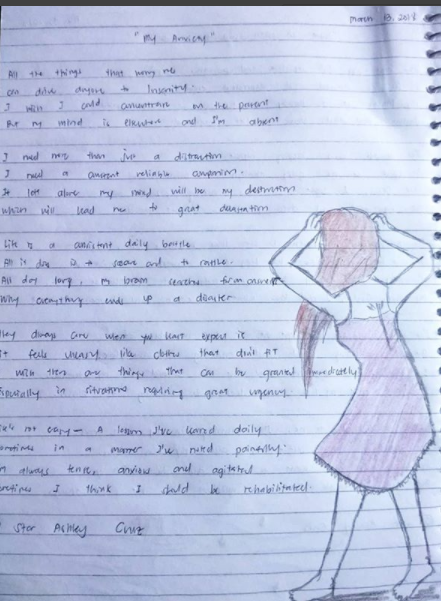 March 13, 2018
"My Anxiety"
All the things that worry me
can drive anyone to insanity.
I wish I could concentrate on the present
But my mind is elsewhere and I'm absent
I need more than just a distraction.
I need a constant reliable companion.
If left alone my mind will be my destruction
which will lead me to great
Life is a consistent daily battle
All it does is to scare and to rattle.
All day long, my brain searches for answers
Why everything ends up a disaster
They always come when you least expect it
It feels uneasy like clothes that don't fit
I wish there are things that can be granted immediately
Especially in situations requiring great urgency
Life's not easy - A lesson I've learned daily
Sometimes in a manner I've noted painfully.
I'm always tense, anxious and agitated
Sometimes I think I should be rehabilitated.
Star Ashley Cruz